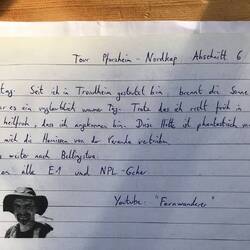 Tour Pforzheim - Nordkap Abschnitt 6
tag. Seit ich in Trondheim gestartet bin, brennt die Sonne
es ein unglaublich warmer Tag. Trotz das ich recht früh in
heilfroh, dass ich angekommen bin. Diese Hütte ist phantastisch
mich die Hornissen von der Veranda vertrieben
weiter nach Bellingstua.
an alle E1 und NPL-Geher
Youtube: "Fernwanderer"